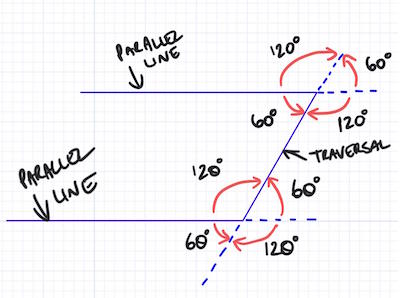 120°
60°
PARALLEL
LINE
60°
120°
TRAVERSAL
PARALLEL
LINE
120°
60°
60°
120°